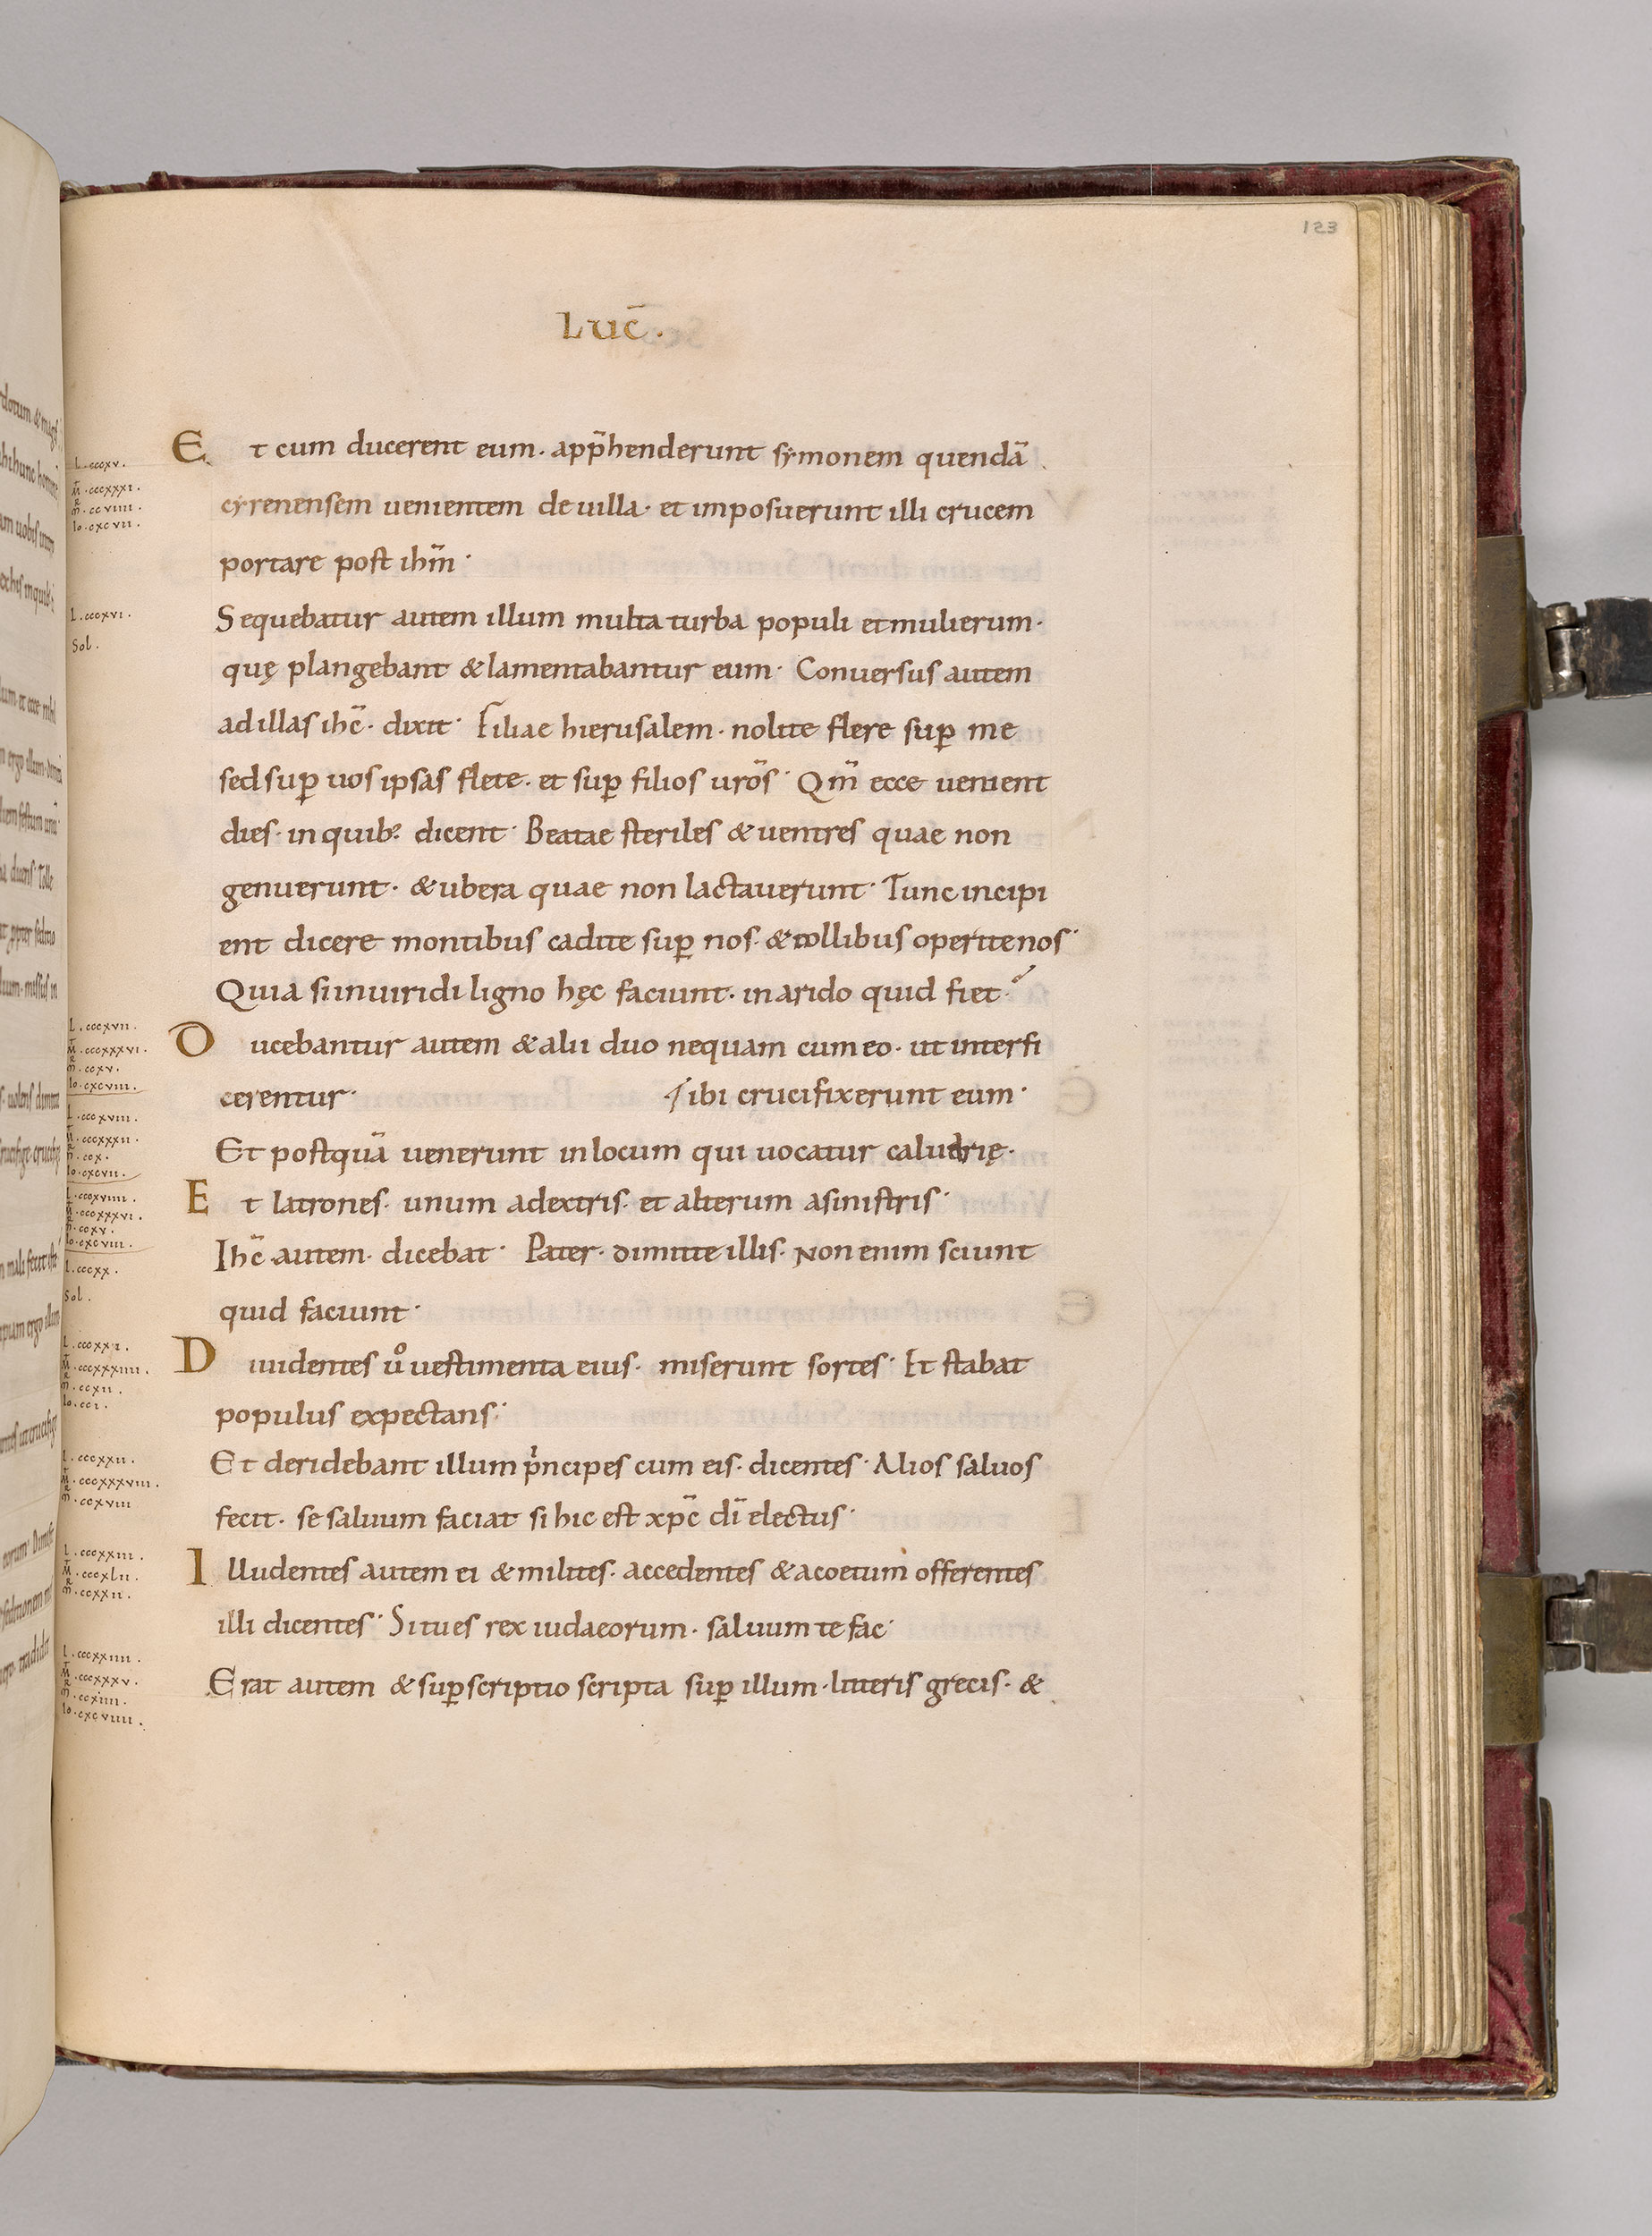 123
Luc̄.
Et cum ducerent eum· app̄henderunt symonem quendā
cyrenensem uenientem de uilla· et imposuerunt illi crucem
portare post ihm̄·
Sequebatur autem illum multa turba populi et mulierum·
quę plangebant & lamentabantur eum· Conuersus autem
ad illas ihc̄· dixit· Filiae hierusalem· nolite flere sup̱ me
sed sup̱ uos ipsas flete· et sup̱ filios urōs· Qm̄ ecce uenient
dies· in quib; dicent· Beatae steriles & uentres quae non
genuerunt· & ubera quae non lactauerunt· Tunc incipi
ent dicere montibus cadite sup̱ nos· & collibus operite nos·
Quia si in uiridi ligno hęc faciunt· in arido quid fiet?
Ducebantur autem & alii duo nequam cum eo· ut interfi
cerentur· ibi crucifixerunt eum·
Et postquā uenerunt in locum qui uocatur caluarię·
Et latrones· unum a dextris· et alterum a sinistris·
Ihc̄ autem· dicebat· Pater· dimitte illis· Non enim sciunt
quid faciunt·
Diuidentes uº uestimenta eius· miserunt sortes· Et stabat
populus expectans·
Et deridebant illum pⁱncipes cum eis· dicentes· Alios saluos
fecit· se saluum faciat si hic est xpc̄ dī electus·
Illudentes autem ei & milites· accedentes & acoetum offerentes
illi dicentes· Si tu es rex iudaeorum· saluum te fac·
Erat autem & sup̱scriptio scripta sup̱ illum· litteris grecis· &
L·cccxv·
M̄·cccxxxi·
R
m̄·ccviiii·
Io·cxcvii·
L·cccxvi·
Sol·
L·cccxvii·
M̄·cccxxxvi·
R
m̄·ccxv·
Io·cxcviii·
L·cccxviii·
M̄·cccxxxii·
R
m̄·ccx·
Io·cxcvii·
L·cccxviiii·
M̄·cccxxxvi·
R
m̄·ccxv·
Io·cxcviii·
L·cccxx·
Sol·
L·cccxxi·
M̄·cccxxxiiii·
R
m̄·ccxii·
Io·cci·
L·cccxxii·
M̄·cccxxxviii·
R
m̄·ccxviii
L·cccxxiii·
M̄·cccxlii·
R
m̄·ccxxii·
L·cccxxiiii·
M̄·cccxxxv·
R
m̄·ccxiiii·
Io·cxcviiii·